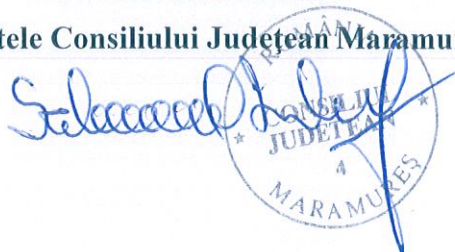 tele Consiliului Județean Maramu
ROMÂNIA
CONSILIUL
JUDEȚEAN
4
MARAMUREȘ